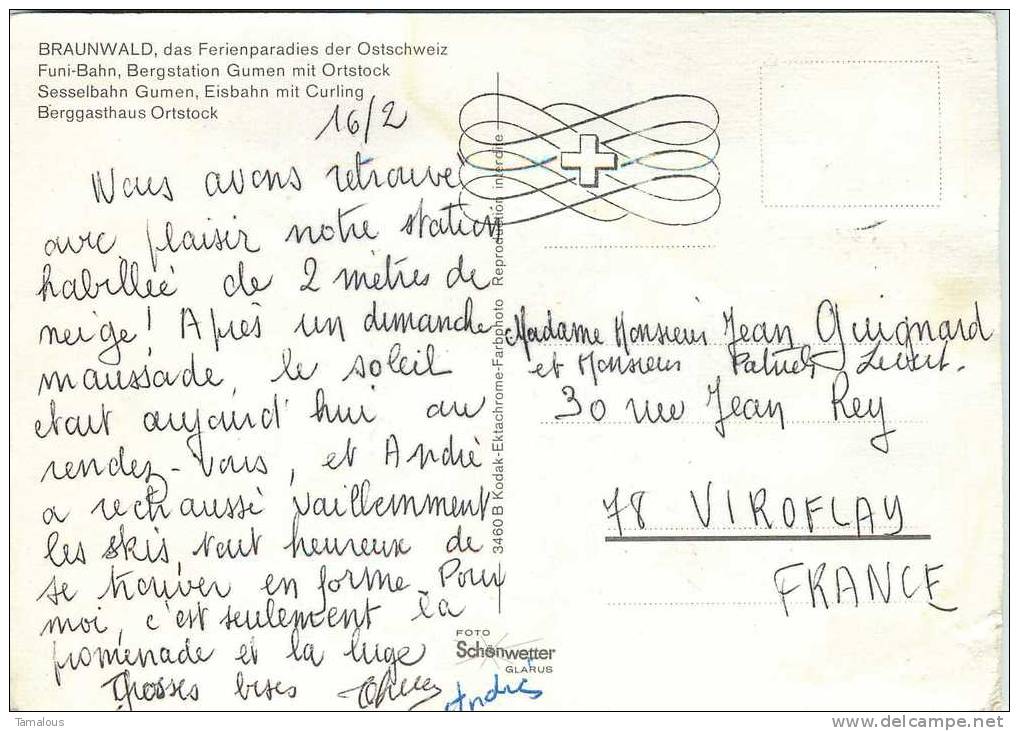 BRAUNWALD, das Ferienparadies der Ostschweiz
Funi-Bahn, Bergstation Gumen mit Ortstock
Sesselbahn Gumen, Eisbahn mit Curling
Berggasthaus Ortstock
16/2
Nous avons retrouvé
avec plaisir notre station
habillée de 2 mètres de
neige! Après un dimanche
maussade, le soleil
était aujourd'hui au
rendez-vous, et André
a rechaussé vaillemment
les skis, tout heureux de
se trouver en forme. Pour
moi, c'est seulement la
promenade et la luge
Grosses bises
André
3460 B Kodak-Ektachrome-Farbphoto Reproduction interdite
FOTO
Schönwetter
GLARUS
Madame Monsieur Jean Guignard
et Monsieur
30 rue Jean Rey
78 VIROFLAY
FRANCE
Tamalous
www.delcampe.net